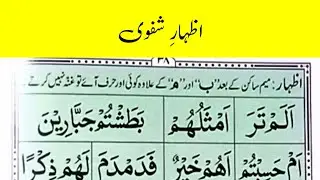 اظہارِ شفوی
۳۸
اظہار: میم ساکن کے بعد "ب" اور "م" کے علاوہ کوئی اور حرف آئے تو غنہ نہیں کرتے۔
اَلَمْ تَرَ اَمْثَلُهُمْ بَطَشْتُمْ جَبَّارِيْنَ
اَمْ حَسِبْتُمْ اَهُمْ خَيْرٌ فَدَمْدَمَ لَهُمْ ذِكْرًا